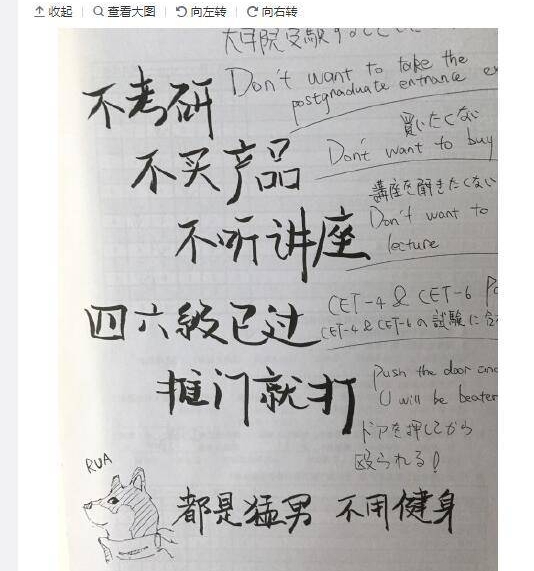 收起 查看大图 向左转 向右转
大学院受験
不考研
Don't want to take the
postgraduate entrance
不买产品
買いたくない
Don't want to buy
不听讲座
講座を聞きたくない
Don't want to
lecture
四六级已过
CET-4 & CET-6
CET-4 & CET-6の試験に合
推门就打
Push the door and
U will be beaten
ドアを押してから
殴られる!
RUA
都是猛男 不用健身